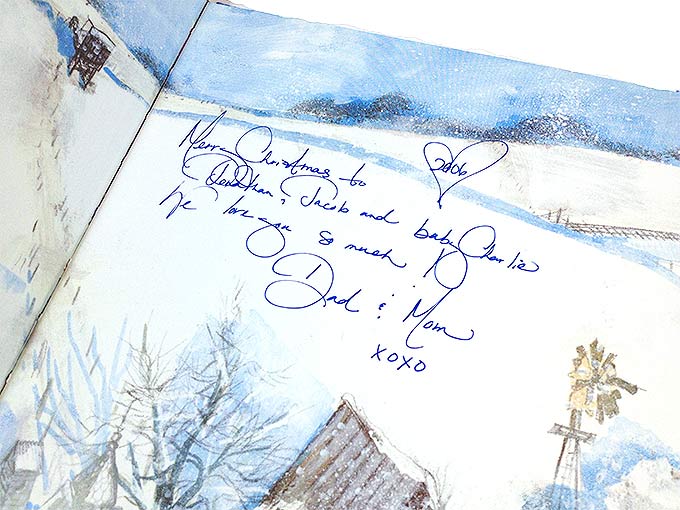 2006
Merry Christmas to
Jonathan, Jacob and baby Charlie
We love you so much!
Dad & Mom
XOXO